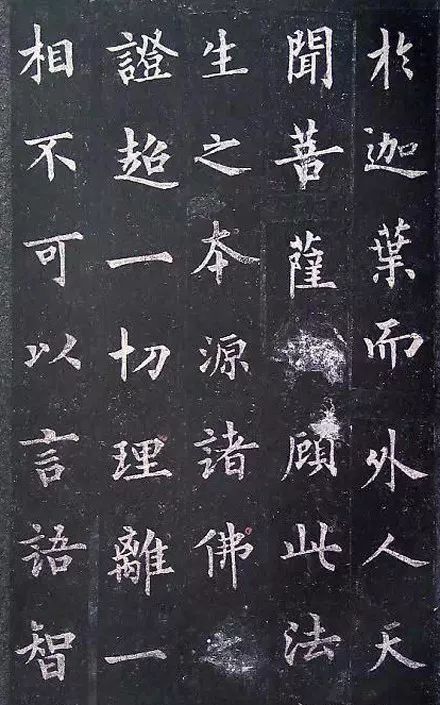 於迦葉而外人天
聞菩薩顧此法
生之本源諸佛之
證超一切理離一
相不可以言語智